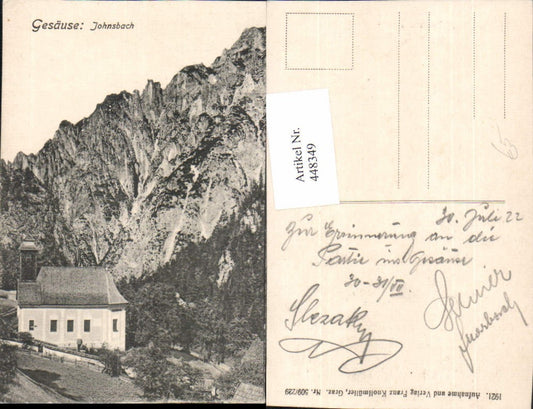 Gesäuse: Johnsbach
Artikel Nr.
448349
30. Juli 22
Zur Erinnerung an die
Partie ins Gesäuse
30-31/VII.
Slezak
1921. Aufnahme und Verlag Franz Knollmüller, Graz. Nr. 509/229